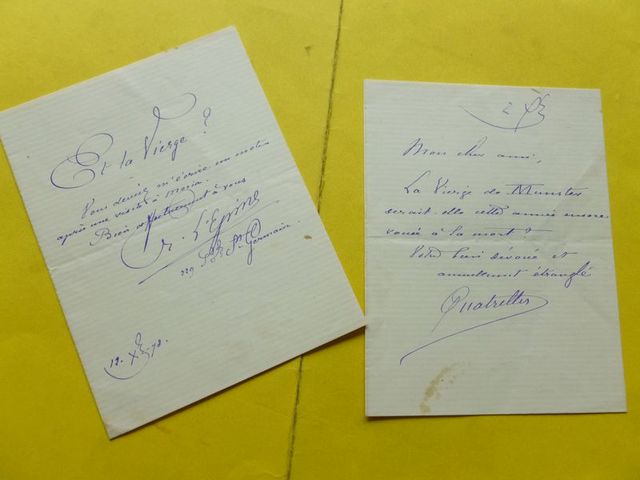 Et la Vierge ?
Vous deviez m'écrire un mot
après une visite à Maria.
Bien affectueusement à vous
E. L'Epine
229 Bd St Germain.
12. Xbre 72.
2 Xbre
Mon cher ami,
La Vierge de Munster
serait-elle cette année encore
vouée à la mort ?
Votre bien dévoué et
annuellement étranglé
Quatrelles